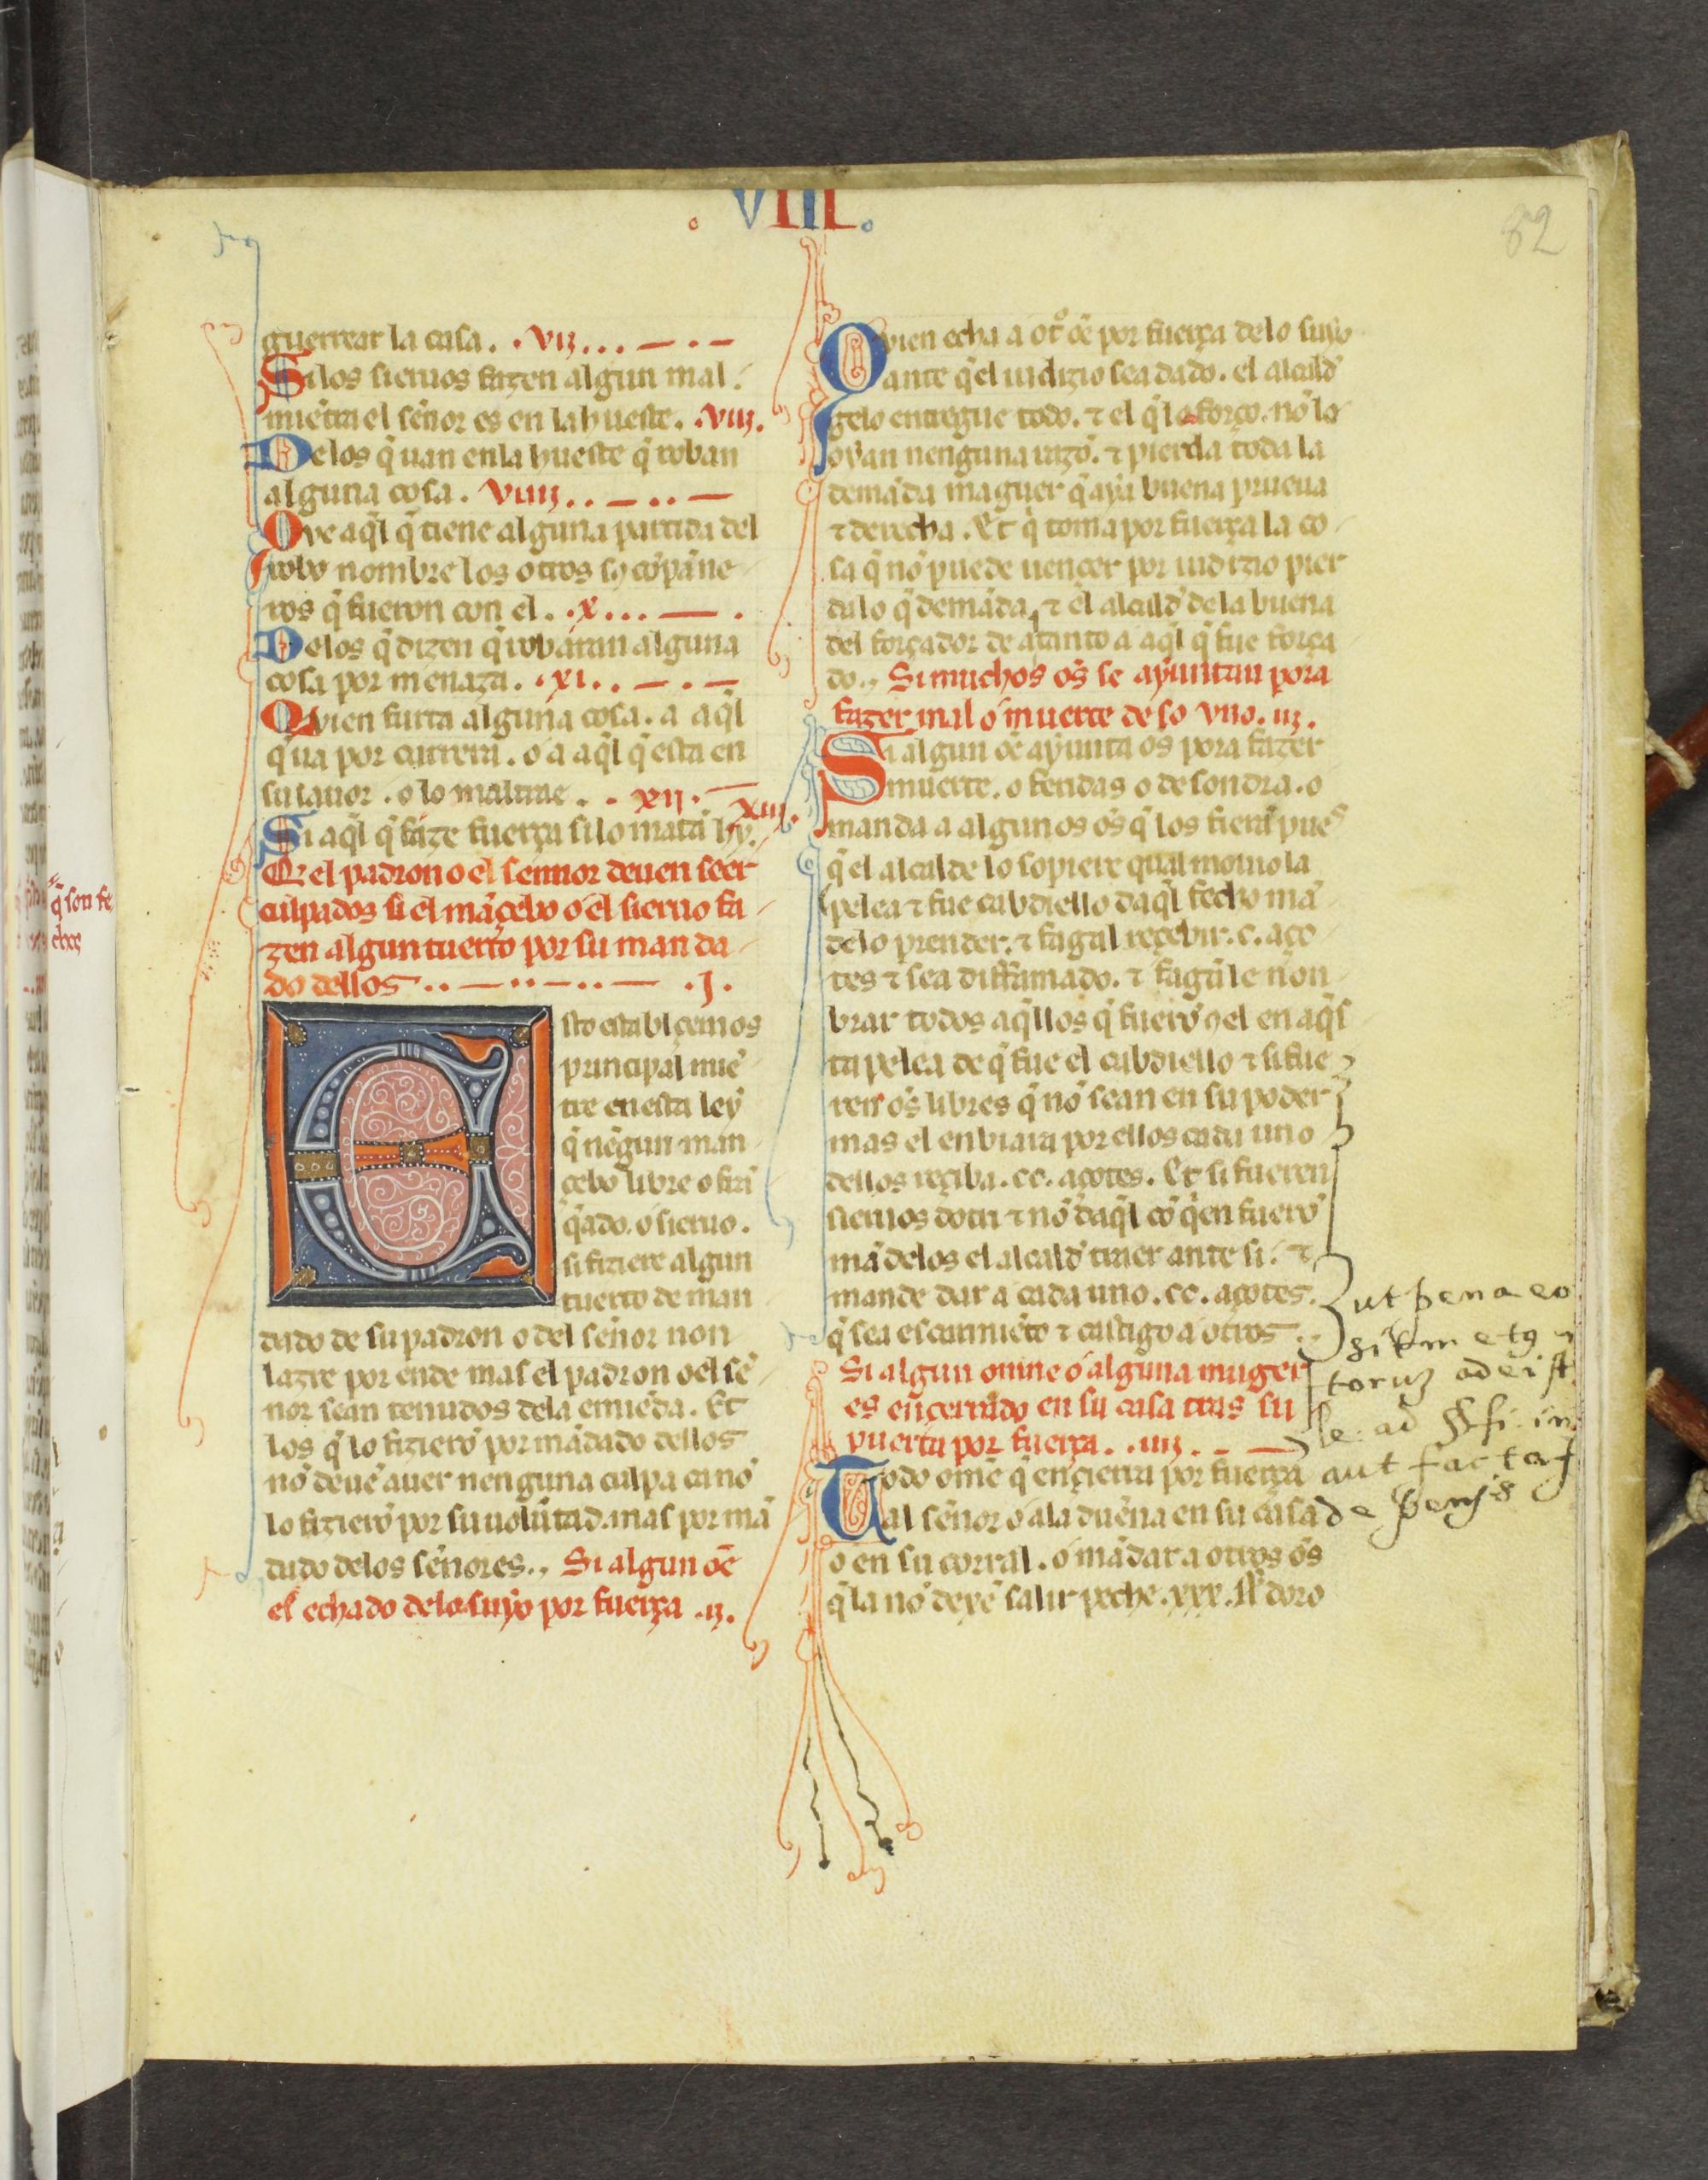 . VIII .
82
guerrear la casa . . vij . . . — . —
Si los sieruos fazen algun mal .
miẽtra el señor es en la hueste . . viij .
De los q̃ uan en la hueste q̃ roban
alguna cosa . viiij . . — . . —
Que aq̃l q̃ tiene alguna partida del
robo nombre los otros sꝯ cõpãne
ros q̃ fueron con el . . x . . . — .
De los q̃ dizen q̃ robaran alguna
cosa por menaza . . xi . . — . —
Quien furta alguna cosa . a aq̃l
q̃ ua por carrera . o a aq̃l q̃ esta en
su lauor . o lo maltrae . . xij . —
Si aq̃l q̃ faze fuerça si lo matã hy . xiij .
Q̃ el padron o el sennor deuen seer
culpados si el mãçebo o el sieruo fa
zen algun tuerto por su manda
do dellos . . — . . — . . — . j .
Esto establçemos
principal miẽ
tre en esta ley
q̃ nẽgun man
çebo libre o frã
q̃ado . o sieruo .
si fiziere algun
tuerto de man
dado de su padron o del señor non
lazre por ende mas el padron o el sẽ
nor sean tenudos de la emiẽda . Et
los q̃ lo fizierõ por mãdado dellos
nõ deuẽ auer nenguna culpa ca nõ
lo fizierõ por su uolũtad . mas por mã
dado de los señores . , Si algun oẽ
es echado de lo suyo por fuerça . ij .
Quien echa a otº oẽ por fuerça de lo suyo
ante q̃ el iudizio sea dado . el alcald̃
gelo entregue todo . ⁊ el q̃ lo forço . nõ lo
oyan nenguna razõ . ⁊ pierda toda la
demãda maguer q̃ aya buena prueua
⁊ derecha . Et q̃ toma por fuerça la co
sa q̃ nõ puede uençer por iudizio pier
da lo q̃ demãda , ⁊ el alcald̃ de la buena
del forçador de atanto a aq̃l q̃ fue força
do . , Si muchos oẽs se ayuntan pora
fazer mal o muerte de so uno . iij .
Si algun oẽ ayunta oẽs pora fazer
muerte . o feridas o desondra . o
manda a algunos oẽs q̃ los fierã pues
q̃ el alcalde lo sopiere qual mouio la
pelea ⁊ fue cabdiello daq̃l fecho mã
delo prender . ⁊ fagal reçebir . c . aço
tes ⁊ sea diffamado . ⁊ fagale non
brar todos aq̃llos q̃ fuerõ ꝯ el en aq̃s
ta pelea de q̃ fue el cabdiello ⁊ si fue
ren oẽs libres q̃ nõ sean en su poder
mas el enbiara por ellos cada uno
dellos reçiba . cc . açotes . Et si fueren
sieruos dotri ⁊ nõ daq̃l cõ q̃en fuerõ
mãdelos el alcald̃ traer ante si . ⁊
mande dar a cada uno . cc . açotes .
q̃ sea escarmiẽto ⁊ castigo a otros . .
Si algun omne o alguna muger
es ençerrado en su casa tras su
puerta por fuerça . . iiij . . — —
Todo omẽ q̃ ençierra por fuerça
al señor o a la dueña en su casa
o en su corral . o mãdar a otros oẽs
q̃ la nõ dexẽ salir peche . xxx . sł̃ doro
ut pena eo
aut factas
de penis
q̃ son fe
chos